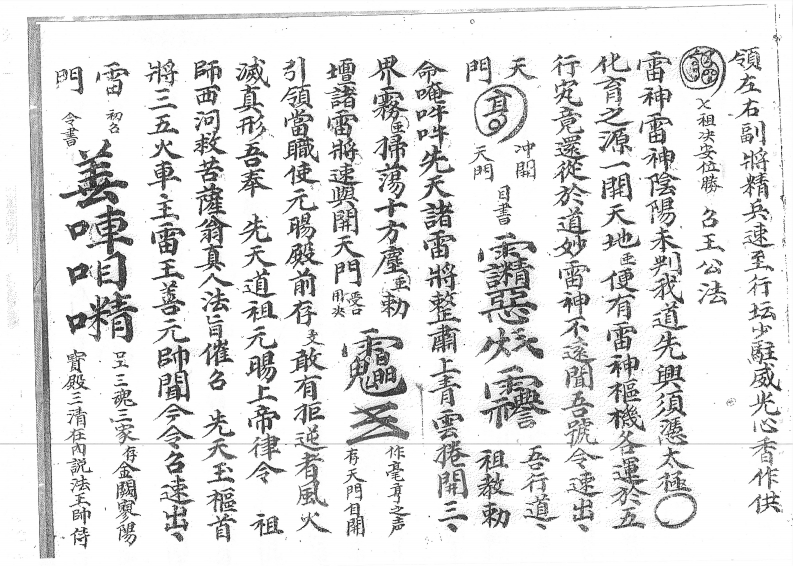 領左右副將精兵速至行坛少駐威光心香作供
七祖决安位勝 召王公法
雷神雷神陰陽未判我道先興須憑太極
化育之源一開天地便有雷神樞機各運於五
行究竟還從於道妙雷神不遠聞吾號令速出
天門 冲開天門 目書 吾行道 祖教勅
命唵吽吽先天諸雷將整肅上青雲捲開三
界霧掃蕩十方塵勅
壇諸雷將速與開天門 作亳亨之声 有天門自開
引領當職使元暘殿前存 敢有拒逆者風火
滅真形吾奉 先天道祖元暘上帝律令 祖
師西河救苦薩翁真人法旨催召 先天玉樞首
將三五火車主雷王善元帥聞今令召速出
雷門 初召 令書 善 呈三魂三家存金闕寥陽
寶殿三清在內說法王帥侍